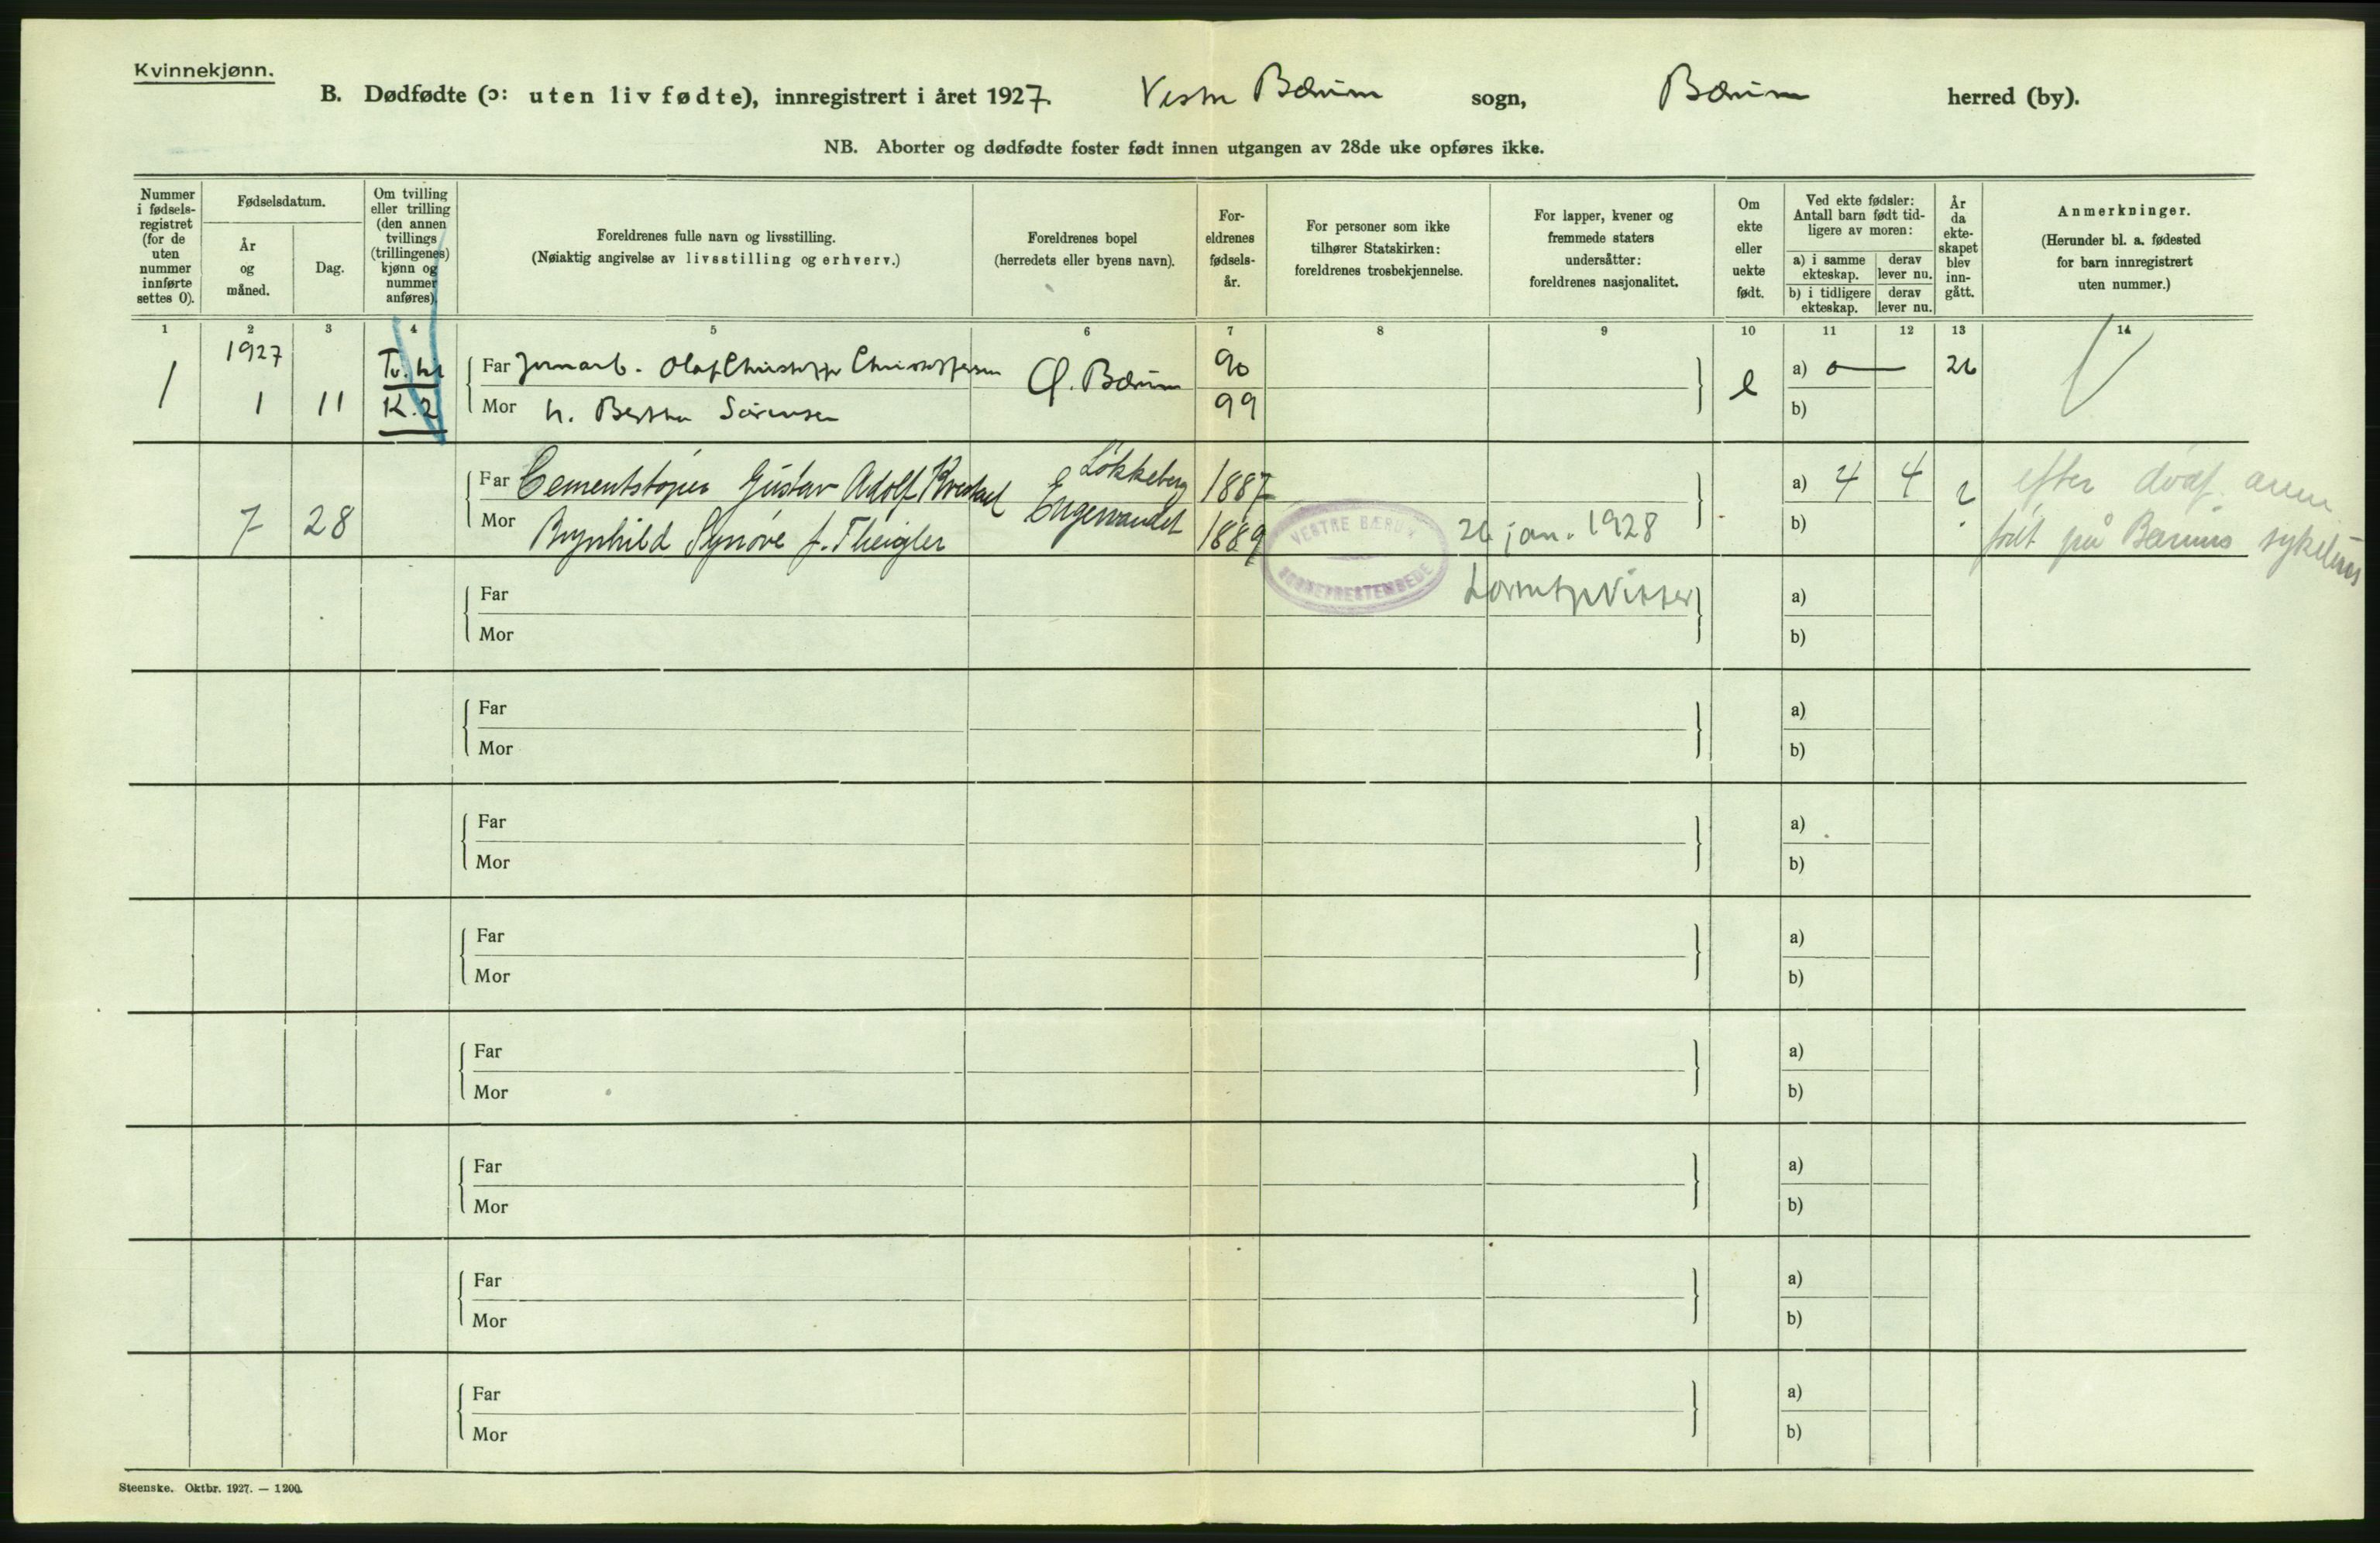 Kvinnekjønn.
B. Dødfødte (ɔ: uten liv fødte), innregistrert i året 1927. Vestre Bærum sogn, Bærum herred (by).
NB. Aborter og dødfødte foster født innen utgangen av 28de uke opføres ikke.
Nummer i fødsels-registret (for de uten nummer innførte settes 0).
Fødselsdatum.
År og måned.
Dag.
Om tvilling eller trilling (den annen tvillings (trillingenes) kjønn og nummer anføres).
Foreldrenes fulle navn og livsstilling.
(Nøiaktig angivelse av livsstilling og erhverv.)
Foreldrenes bopel
(herredets eller byens navn).
For-eldrenes fødsels-år.
For personer som ikke tilhører Statskirken: foreldrenes trosbekjennelse.
For lapper, kvener og fremmede staters undersåtter: foreldrenes nasjonalitet.
Om ekte eller uekte født.
Ved ekte fødsler: Antall barn født tid-ligere av moren:
a) i samme ekteskap.
derav lever nu.
b) i tidligere ekteskap.
derav lever nu.
År da ekte-skapet blev inn-gått.
Anmerkninger.
(Herunder bl. a. fødested for barn innregistrert uten nummer.)
1 2 3 4 5 6 7 8 9 10 11 12 13 14
1927
1 1 11 Tv. til K. 2
Far Jernarb. Olaf Christoffer Christoffersen V. Bærum 90 e a) 0 — 26
Mor h. Bertha Sørensen 99 b)
Far Cementstøper Gustav Adolf Løkkeberg 1887 a) 4 4 ?
7 28 Mor Brynhild Synøve f. Theigler 1889 b)
efter
født på Bærums sykehus
VESTRE BÆRUM SOGNEPRESTEMBEDE
26 jan. 1928
Far a)
Mor b)
Far a)
Mor b)
Far a)
Mor b)
Far a)
Mor b)
Far a)
Mor b)
Far a)
Mor b)
Far a)
Mor b)
Far a)
Mor b)
Steenske. Oktbr. 1927. — 1200.